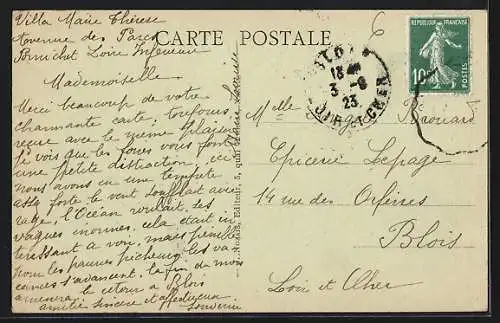 Villa Marie Thérèse
Avenue des Parcs
Pornichet Loire Inférieure
CARTE POSTALE
REPUBLIQUE FRANÇAISE
POSTES
10
3 -8
23
LOIR-ET-CHER
Mademoiselle
Merci beaucoup de votre
charmante carte, toujours
reçue avec le même plaisir
Je vois que les foires vous font
une petite distraction, ici
nous avons eu une tempête
assez forte le vent soufflait avec
rage, l'Océan roulait les
vagues énormes, cela était in
téressant à voir, mais pénible
pour les pauvres pêcheurs les va
cances s'avancent, la fin du mois
amènera le retour à Blois
amitié sincère et affectueux
souvenir
Melle Rouard
Epicerie Lepage
14 rue des Orfèvres
Blois
Loir et Cher